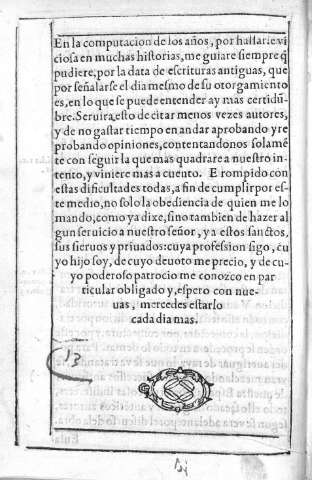 En la computacion de los años, por hallarse vi
ciosa en muchas historias, me guiare siempre q̃
pudiere, por la data de escrituras antiguas, que
por señalarse el dia mesmo de su otorgamiento
es, en lo que se puede entender ay mas certidũ-
bre. Seruira esto de citar menos vezes autores,
y de no gastar tiempo en andar aprobando y re
probando opiniones, contentandonos solamẽ
te con seguir la que mas quadrare a nuestro in
tento, y viniere mas a cuento. E rompido con
estas dificultades todas, a fin de cumplir por es-
te medio, no solo la obediencia de quien me lo
mando, como ya dixe, sino tambien de hazer al
gun seruicio a nuestro señor, y a estos sanctos,
sus sieruos y priuados: cuya profession sigo, cu
yo hijo soy, de cuyo deuoto me precio, y de cu-
yo poderoso patrocio me conozco en par
ticular obligado y, espero con nue-
uas, mercedes estarlo
cada dia mas.
13